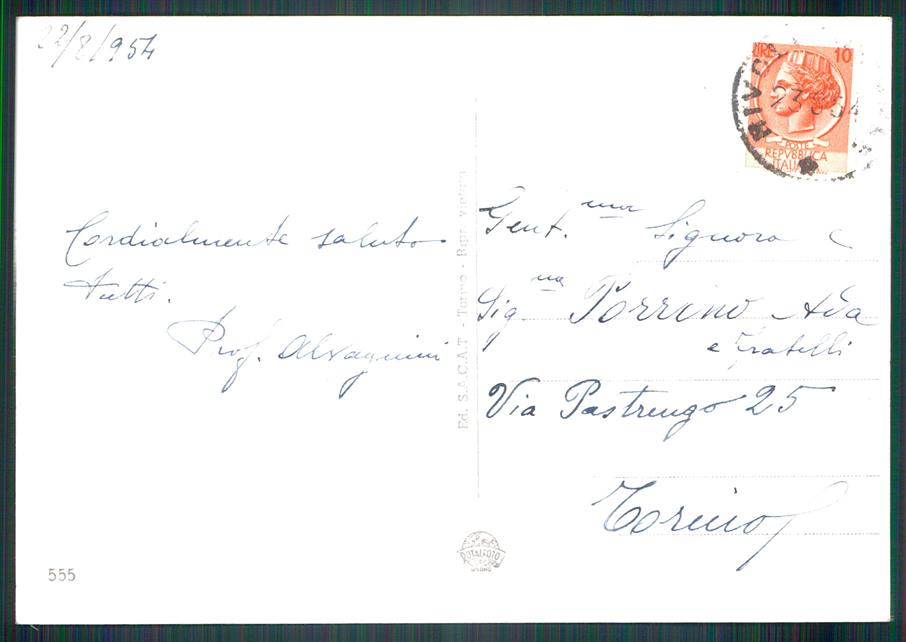 22/8/954
Cordialmente saluto
tutti.
Prof. Alvagnini
LIRE 10
POSTE
REPVBBLICA
ITALIANA
23 8 54
Gent.ma Signora e
Sig.na Porrino Ada
e fratelli
Via Pastrengo 25
Torino
Ed. S.A.C.A.T - Torino - Ripr. vietata
MILANO
555